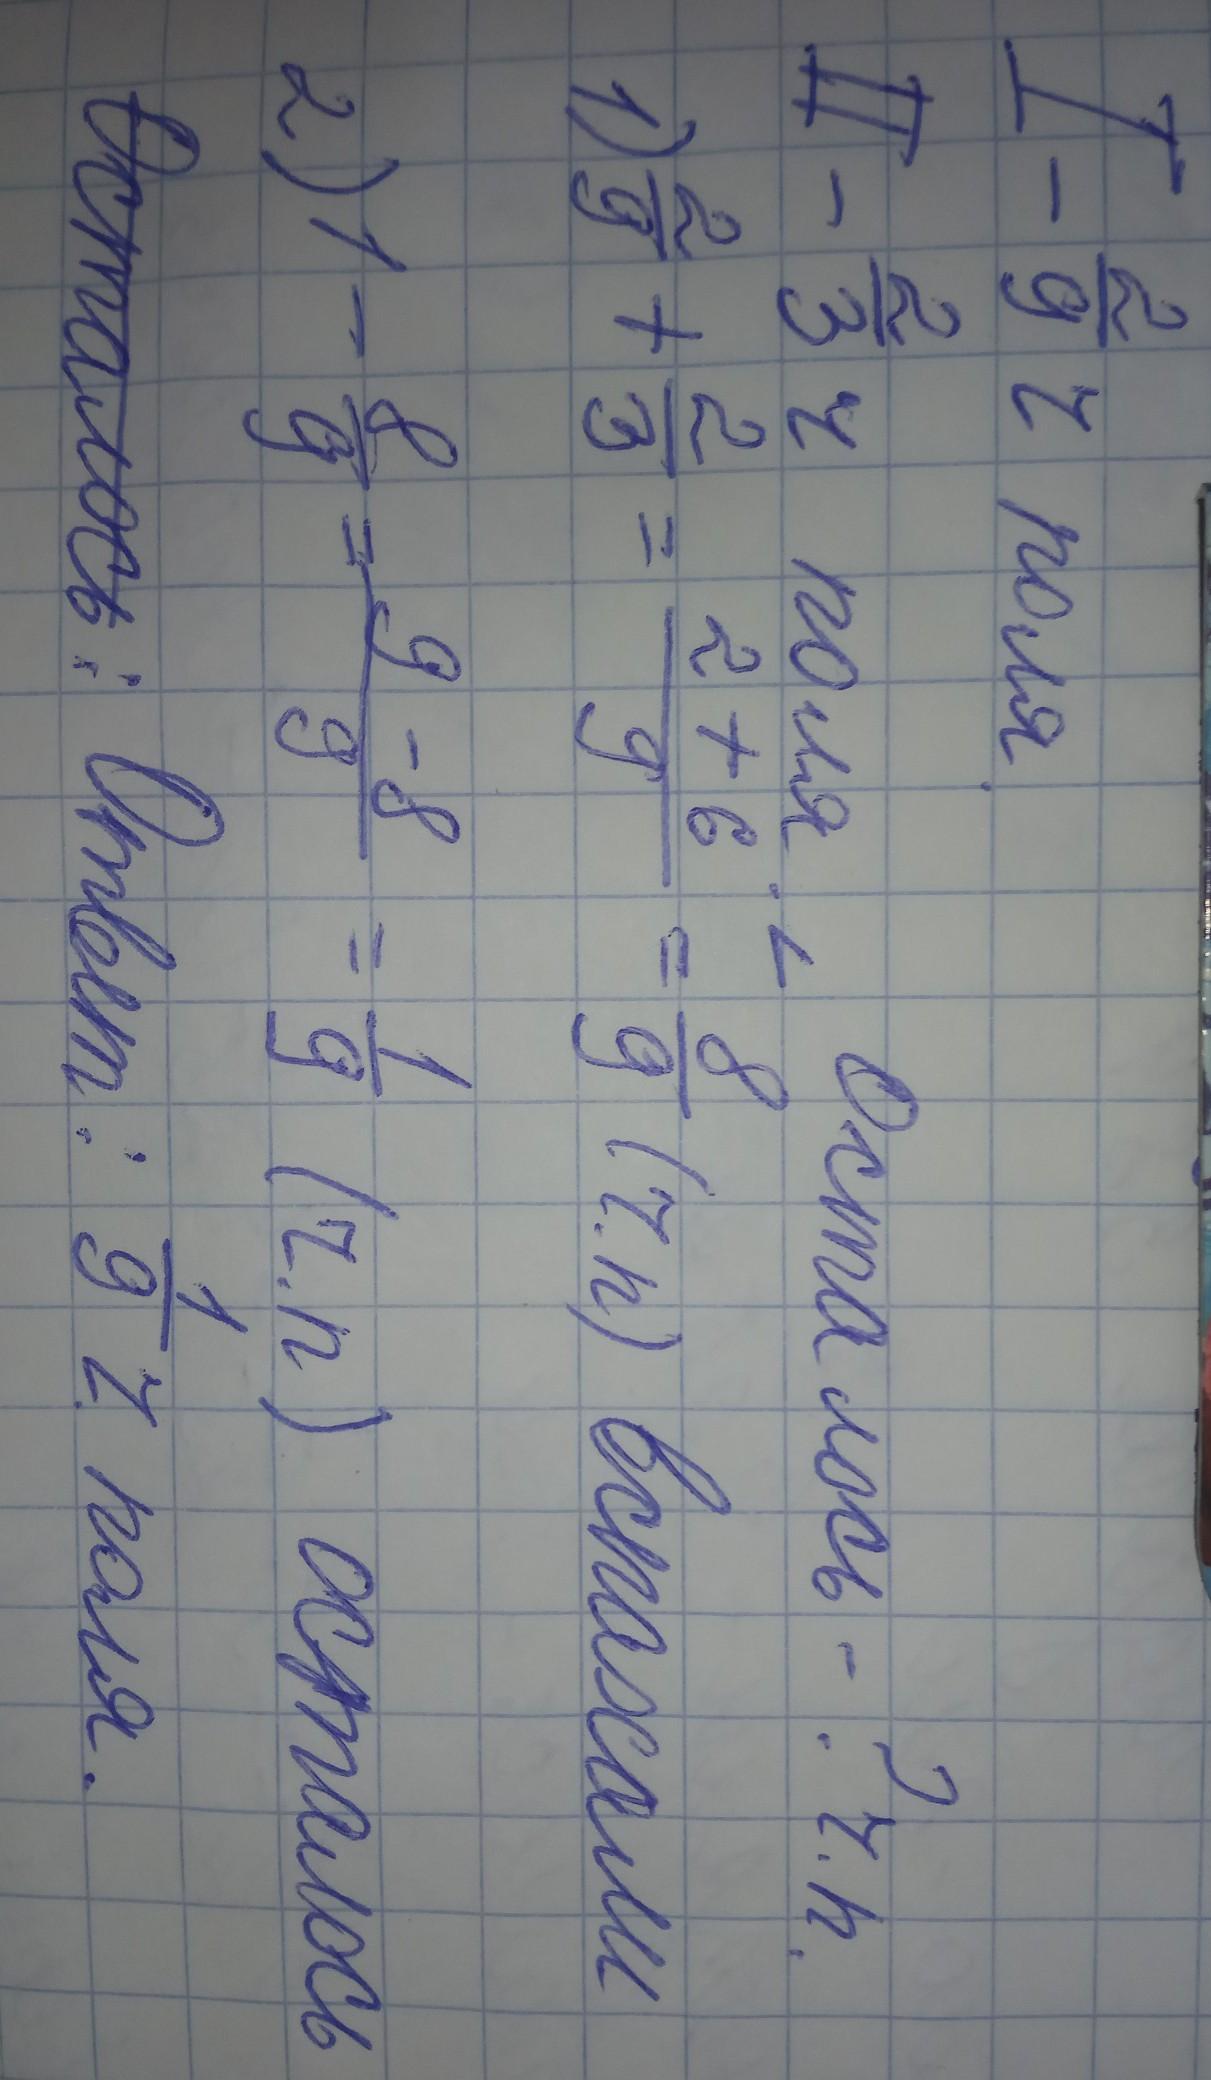 I - 2/9 ч поля.
II - 2/3 ч поля. Осталось - ? ч.п.
1) 2/9 + 2/3 = 2+6/9 = 8/9 (ч.п) вспахали
2) 1 - 8/9 = 9-8/9 = 1/9 (ч.п) осталось
Осталось: Ответ: 1/9 ч поля.